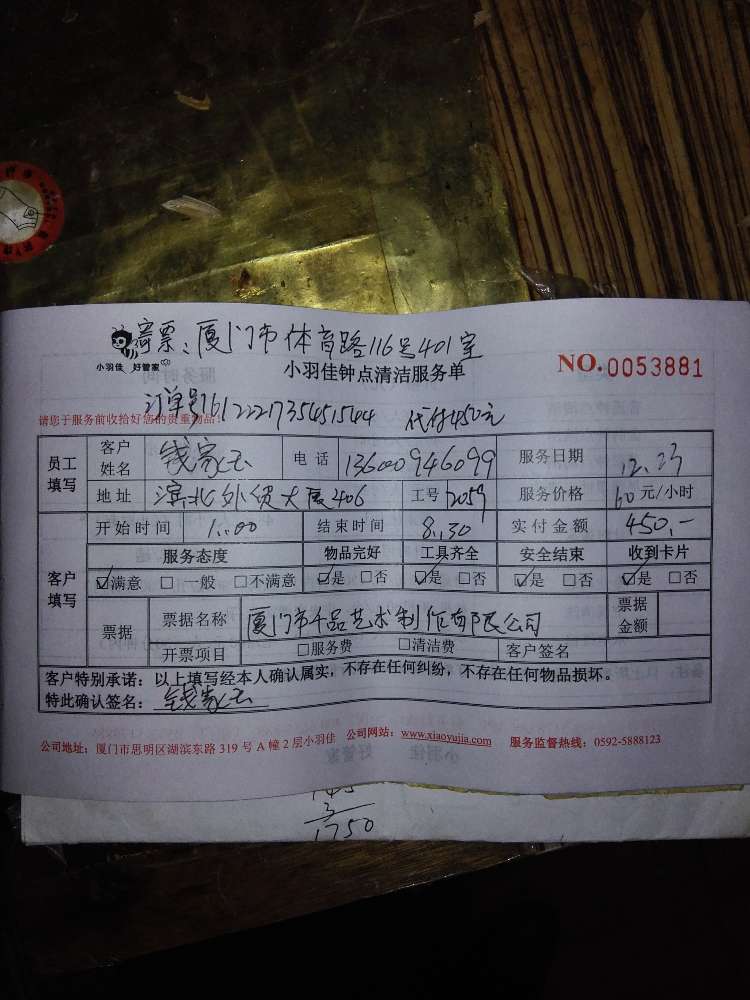 寄票：厦门市体育路116号401室
小羽佳 好管家
小羽佳钟点清洁服务单
NO.0053881
订单号 代付450元
请您于服务前收拾好您的贵重物品：
员工填写 客户姓名 钱家玉 电话 13600946099 服务日期 12.23
地址 滨北外贸大厦406 工号 2059 服务价格 60元/小时
客户填写 开始时间 1:00 结束时间 8:30 实付金额 450.-
服务态度 物品完好 工具齐全 安全结束 收到卡片
☑满意 □一般 □不满意 ☑是 □否 ☑是 □否 ☑是 □否 ☑是 □否
票据 票据名称 厦门市千品艺术制作有限公司 票据金额
开票项目 □服务费 □清洁费 客户签名
客户特别承诺：以上填写经本人确认属实，不存在任何纠纷，不存在任何物品损坏。
特此确认签名：钱家玉
公司地址：厦门市思明区湖滨东路319号A幢2层小羽佳 公司网站：www.xiaoyujia.com 服务监督热线：0592-5888123
3
1750